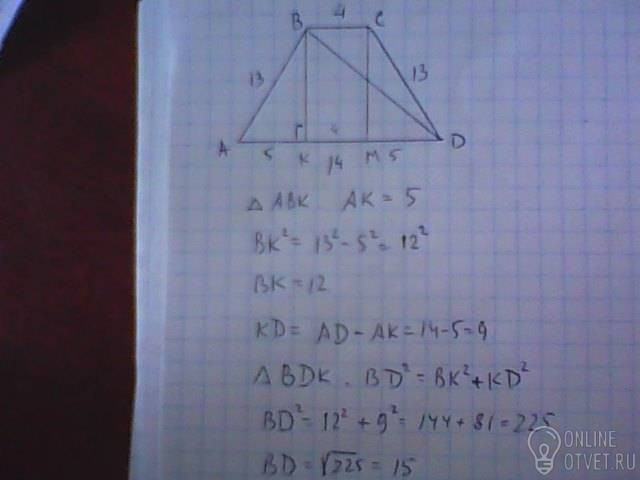 4
B C
13 13
4
A 5 K 14 M 5 D
△ ABK AK = 5
BK² = 13² - 5² = 12²
BK = 12
KD = AD - AK = 14 - 5 = 9
△ BDK . BD² = BK² + KD²
BD² = 12² + 9² = 144 + 81 = 225
BD = √225 = 15
ONLINE
OTVET.RU